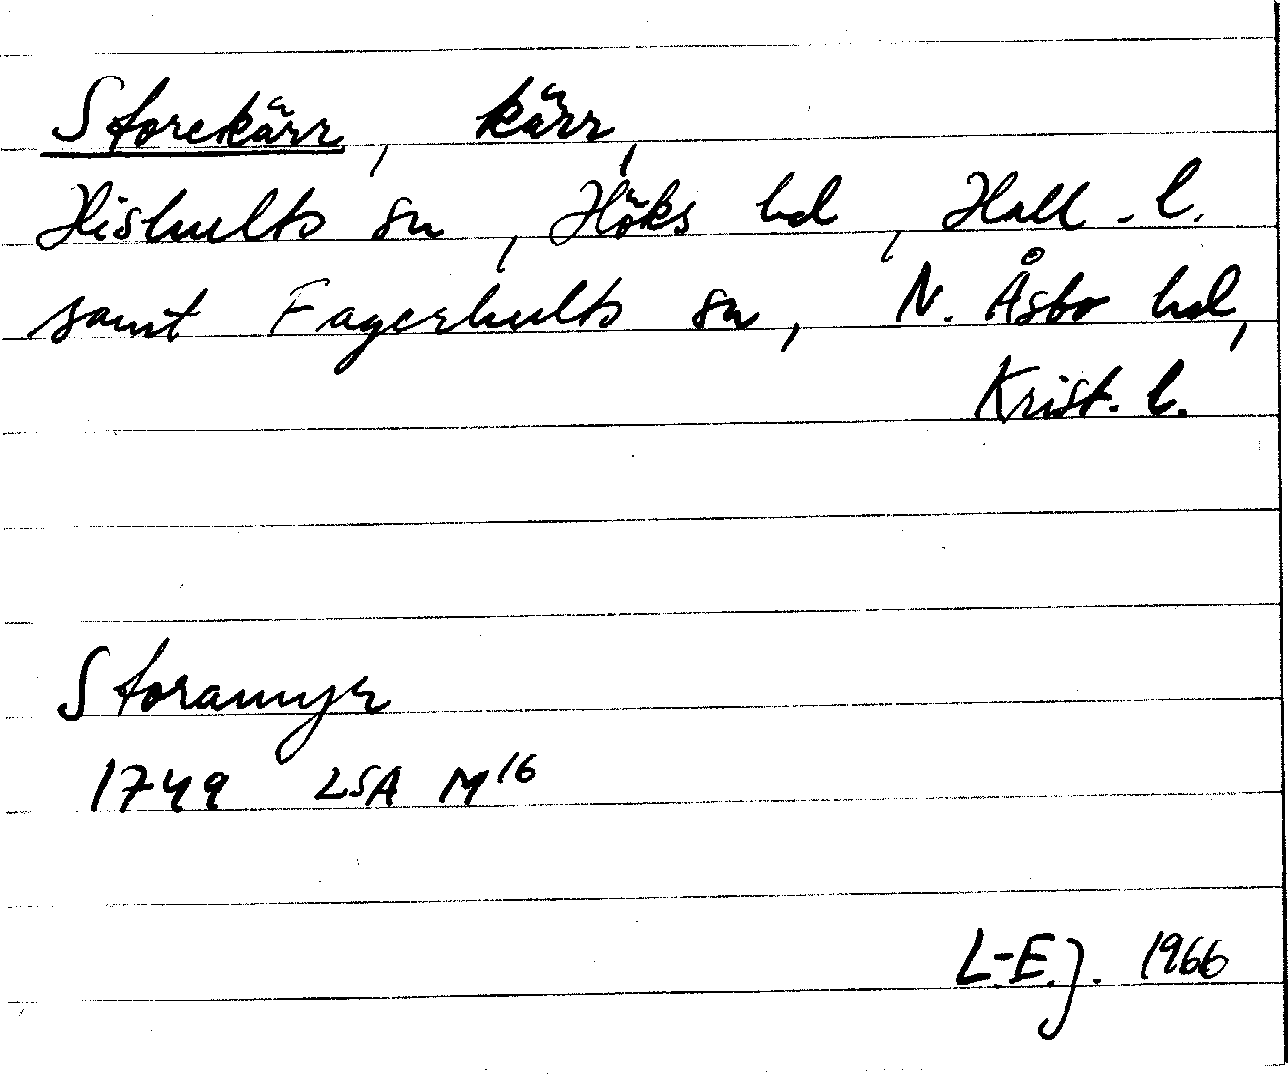 Storekärr, kärr,
Hishults sn, Höks hd, Hall. l.
samt Fagerhults sn, N. Åsbo hd,
Krist. l.
Storamyr
1749 LSA M16
L-E.J. 1966